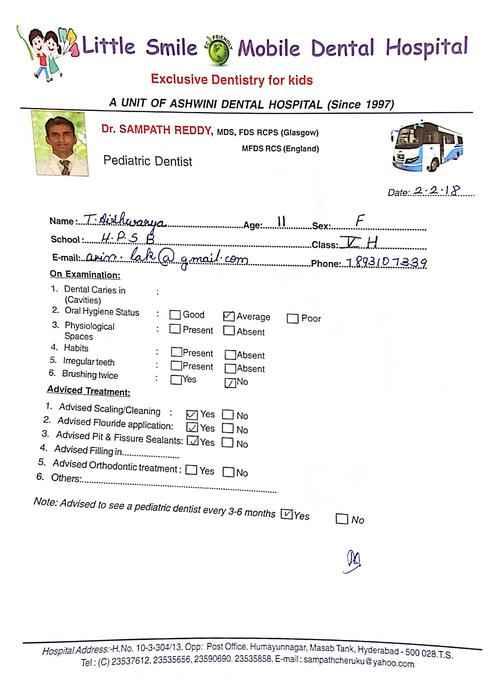 Little Smile ECO FRIENDLY Mobile Dental Hospital
Exclusive Dentistry for kids
A UNIT OF ASHWINI DENTAL HOSPITAL (Since 1997)
Dr. SAMPATH REDDY, MDS, FDS RCPS (Glasgow)
MFDS RCS (England)
Pediatric Dentist
Date: 2-2-18
Name: T. Aishwarya Age: 11 Sex: F
School: H.P.S B Class: V H
E-mail: arin.lak@gmail.com Phone: 7893107339
On Examination:
1. Dental Caries in :
(Cavities)
2. Oral Hygiene Status : Good Average Poor
3. Physiological : Present Absent
Spaces
4. Habits : Present Absent
5. Irregular teeth : Present Absent
6. Brushing twice : Yes No
Adviced Treatment:
1. Advised Scaling/Cleaning : Yes No
2. Advised Flouride application: Yes No
3. Advised Pit & Fissure Sealants: Yes No
4. Advised Filling in
5. Advised Orthodontic treatment : Yes No
6. Others:
Note: Advised to see a pediatric dentist every 3-6 months Yes No
Hospital Address:-H.No. 10-3-304/13, Opp: Post Office, Humayunnagar, Masab Tank, Hyderabad - 500 028.T.S.
Tel : (C) 23537612, 23535656, 23590690. 23535858. E-mail : sampathcheruku@yahoo.com